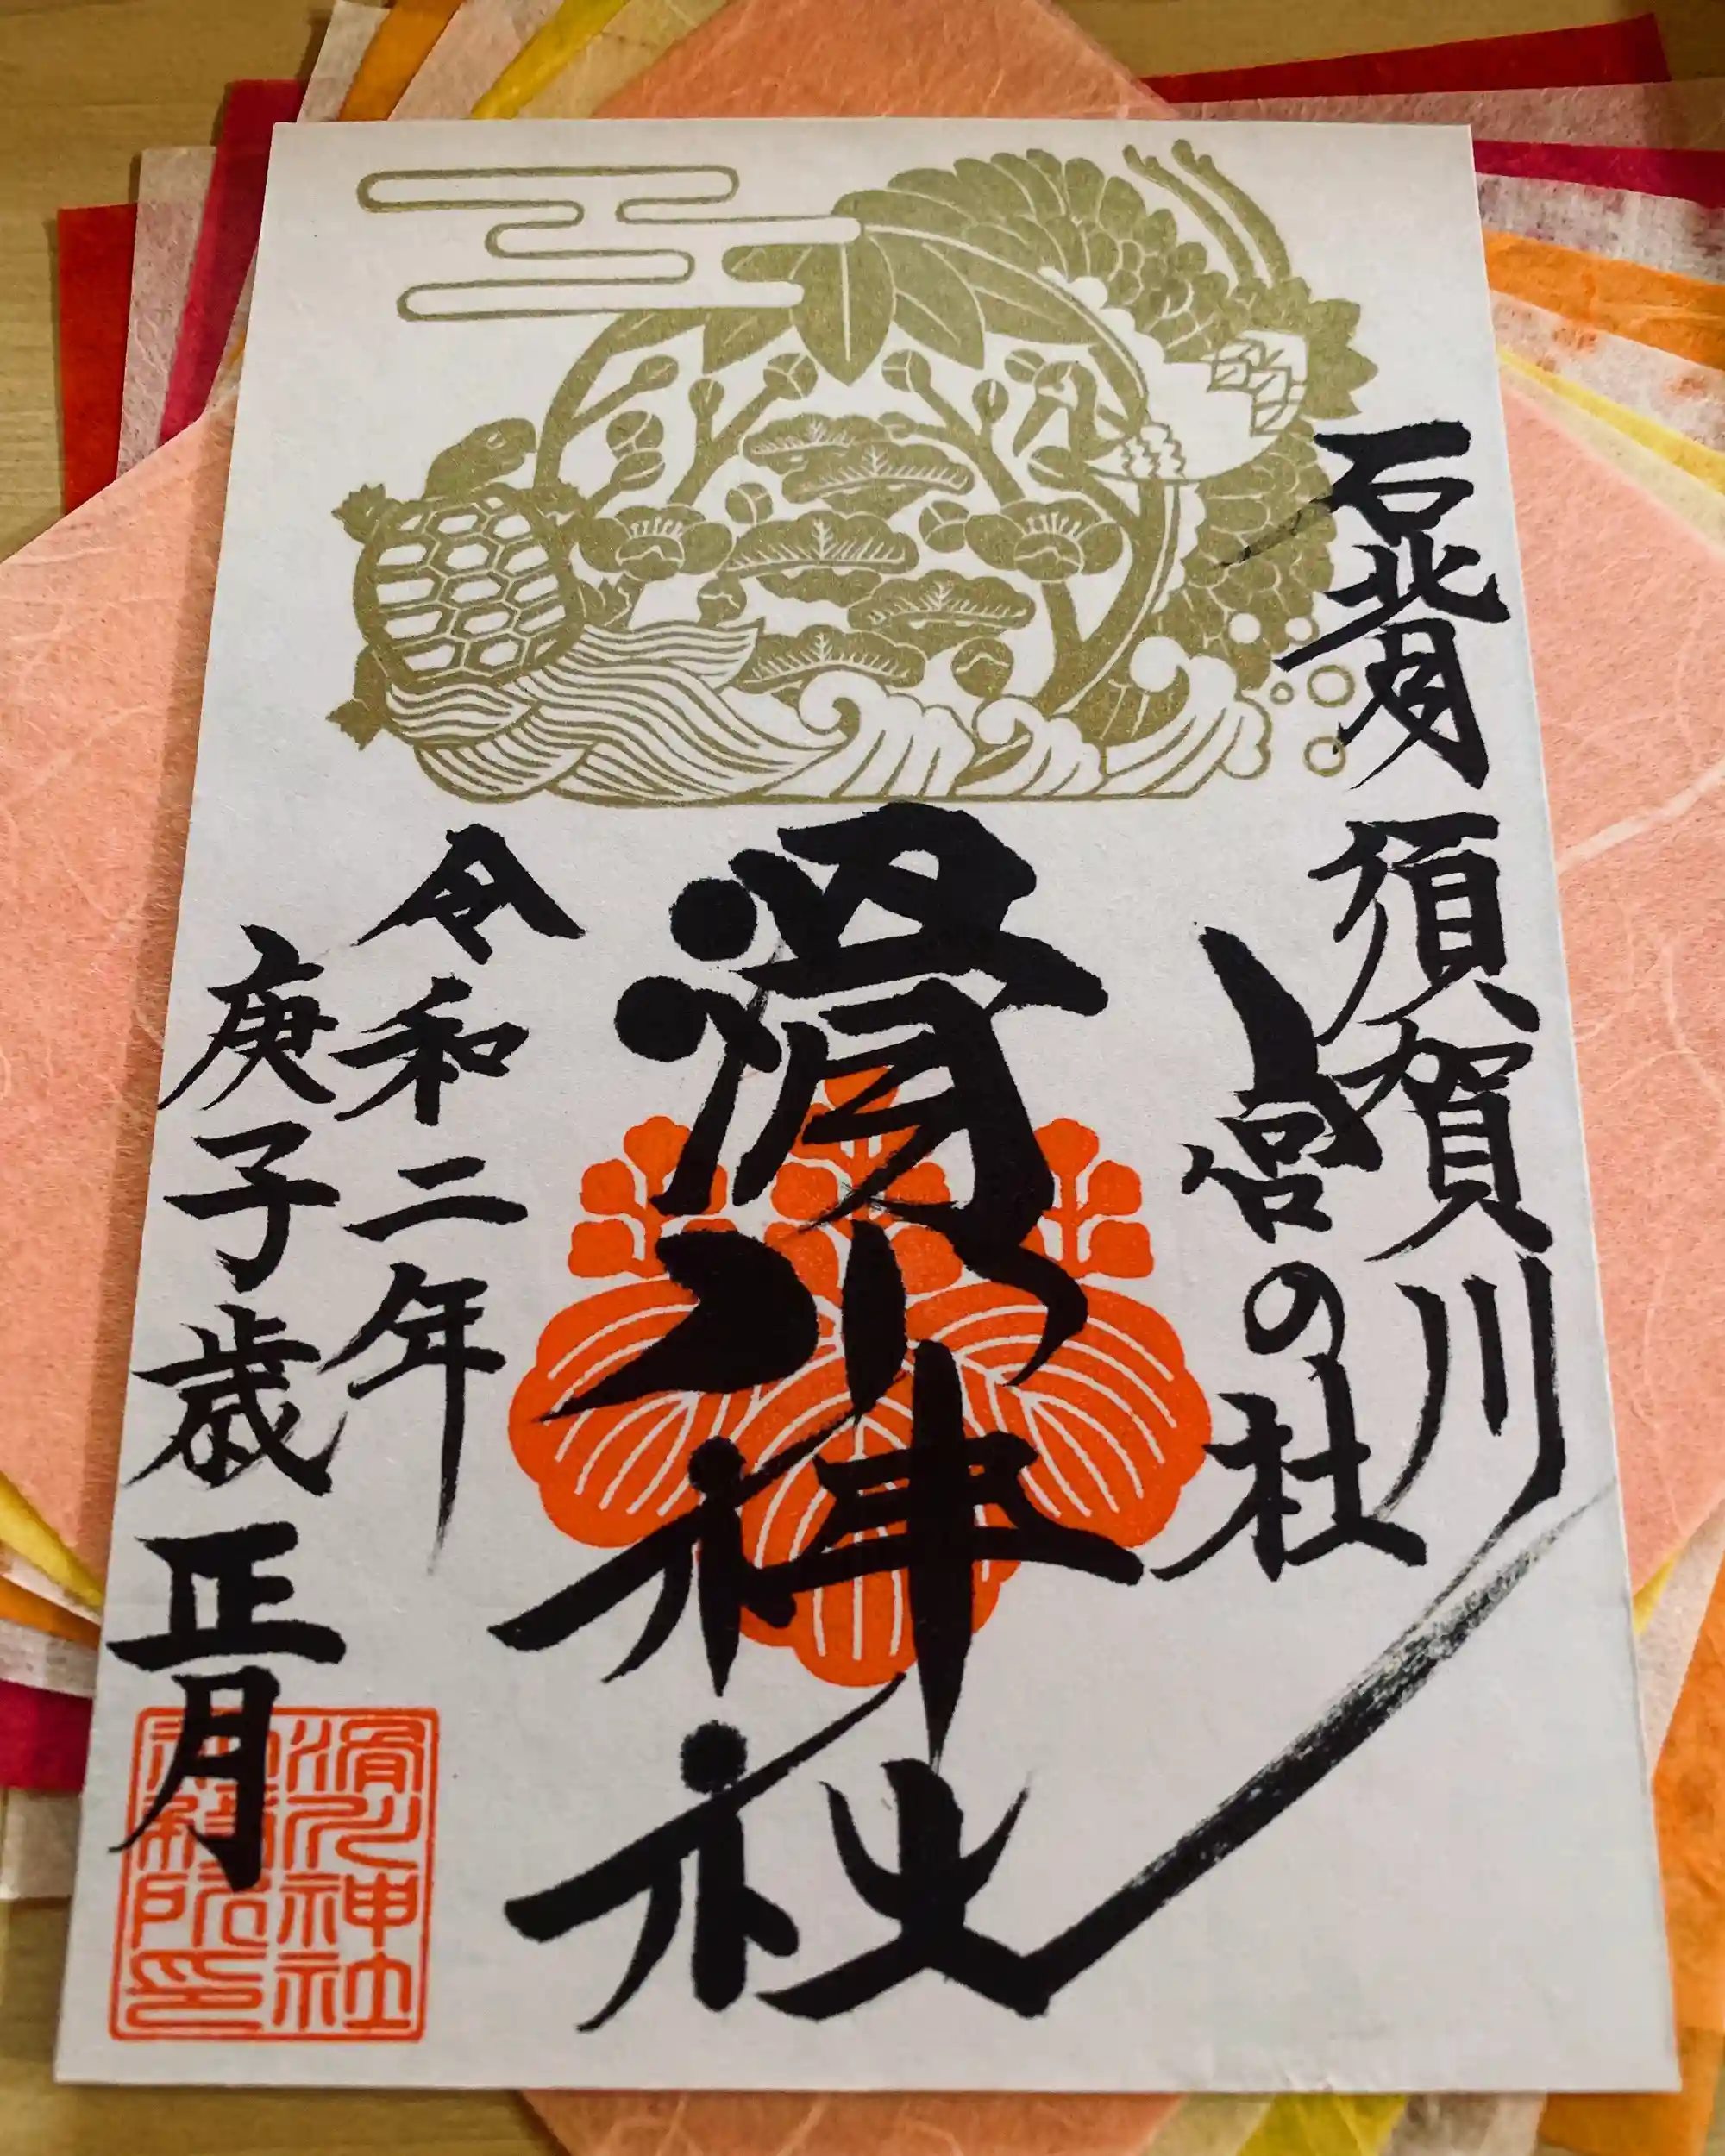 石背 須賀川
宮の杜
滑川神社
令和二年
庚子歳 正月
滑川神社
社務所印